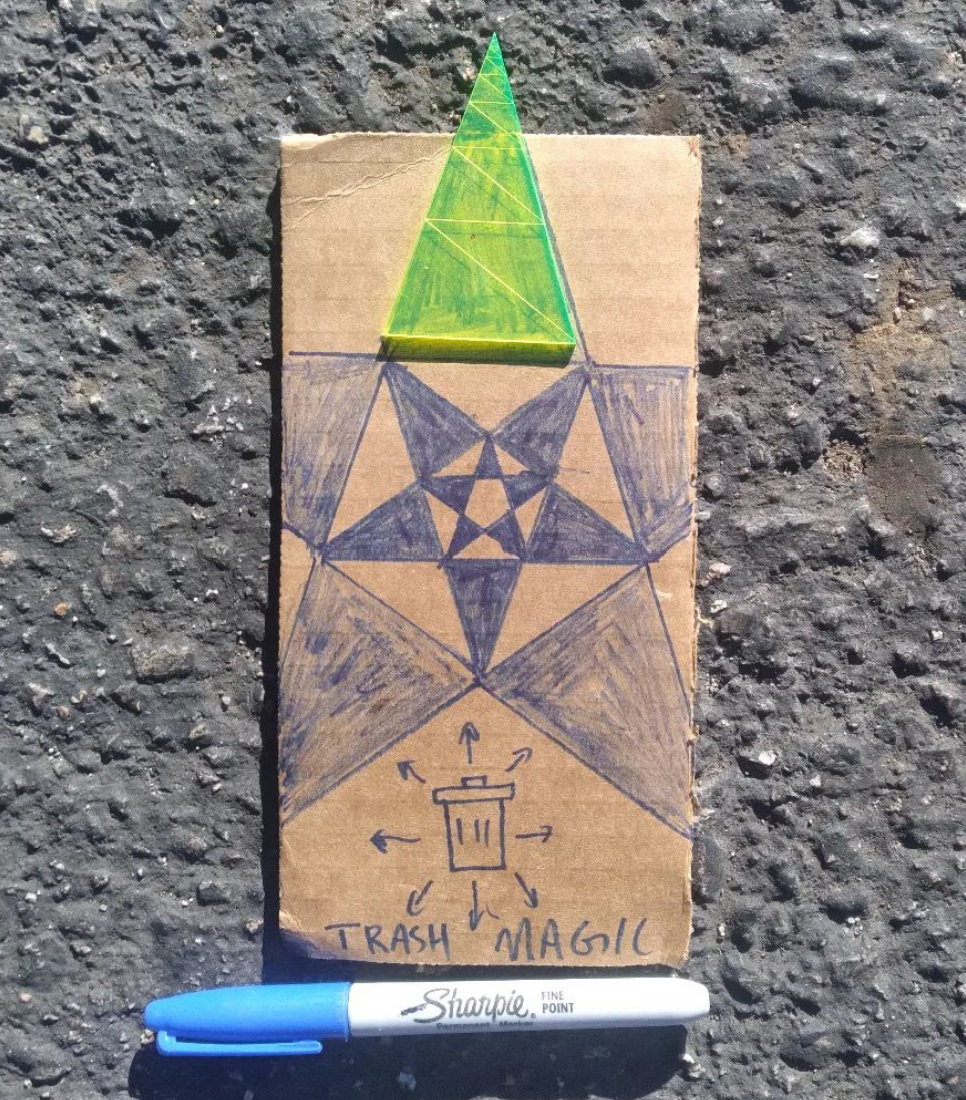 TRASH MAGIC
Sharpie. FINE
POINT
Permanent Marker